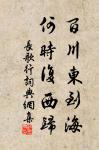 百川東到海
何時復西歸
長歌行詞典網集